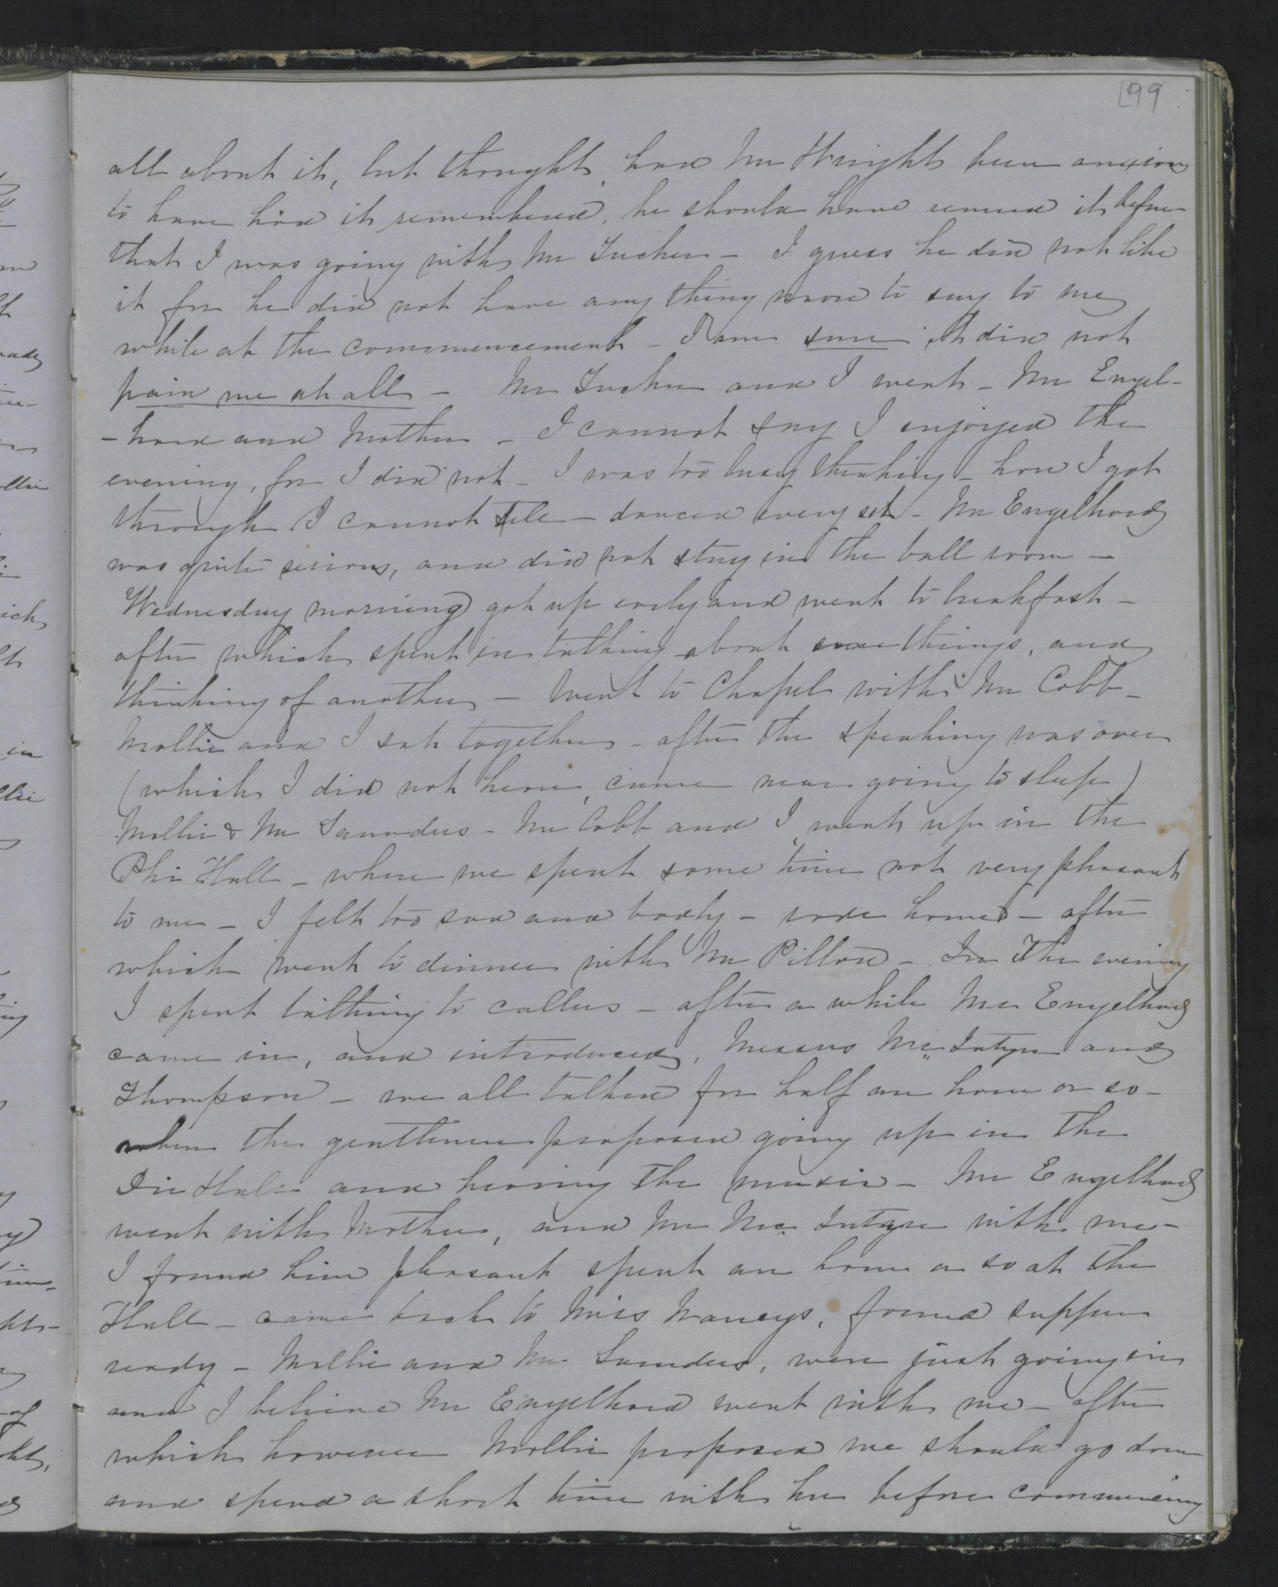 99
all about it, but thought, had Mr Wright been anxious
to have had it remembered, he should have renewed it before
that I was going with Mr Tucker - I guess he did not like
it for he did not have any thing more to say to me
while at the commencement - I am sure it did not
pain me at all - Mr Tucker and I went - Mr Engel-
-hard and Mother - I cannot say I enjoyed the
evening, for I did not - I was too busy thinking - how I got
through I cannot tell - danced every set - Mr Engelhard
was quite serious, and did not stay in the ball room -
Wednesday morning got up early and went to breakfast -
after which spent in talking about some things, and
thinking of another - Went to Chapel with Mr Cobb -
Mollie and I sat together - after the speaking was over
(which I did not hear, came near going to sleep)
Mollie & Mr Saunders - Mr Cobb and I went up in the
Phi Hall - where we spent some time not very pleasant
to me - I felt too sad and badly - rode home - after
which went to dinner with Mr Pillow - In the evening
I spent talking to callers - after a while Mr Engelhard
came in, and introduced, Messrs McIntyre and
Thompson - we all talked for half an hour or so -
when the gentlemen proposed going up in the
Die Hall and hearing the music - Mr Engelhard
went with Mother, and Mr McIntyre with me -
I found him pleasant spent an hour or so at the
Hall - came back to Miss Nancys, found supper
ready - Mollie and Mr Saunders, were just going in
and I believe Mr Engelhard went with me - after
which however Mollie proposed we should go down
and spend a short time with her before commencing